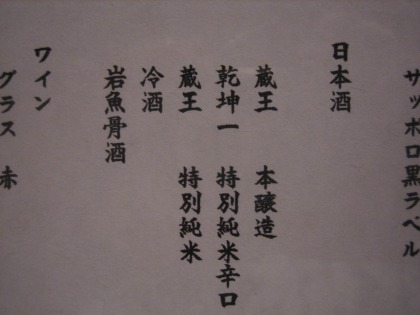 サッポロ黒ラベル
日本酒
蔵王 本醸造
乾坤一 特別純米辛口
蔵王 特別純米
冷酒
岩魚骨酒
ワイン
グラス 赤